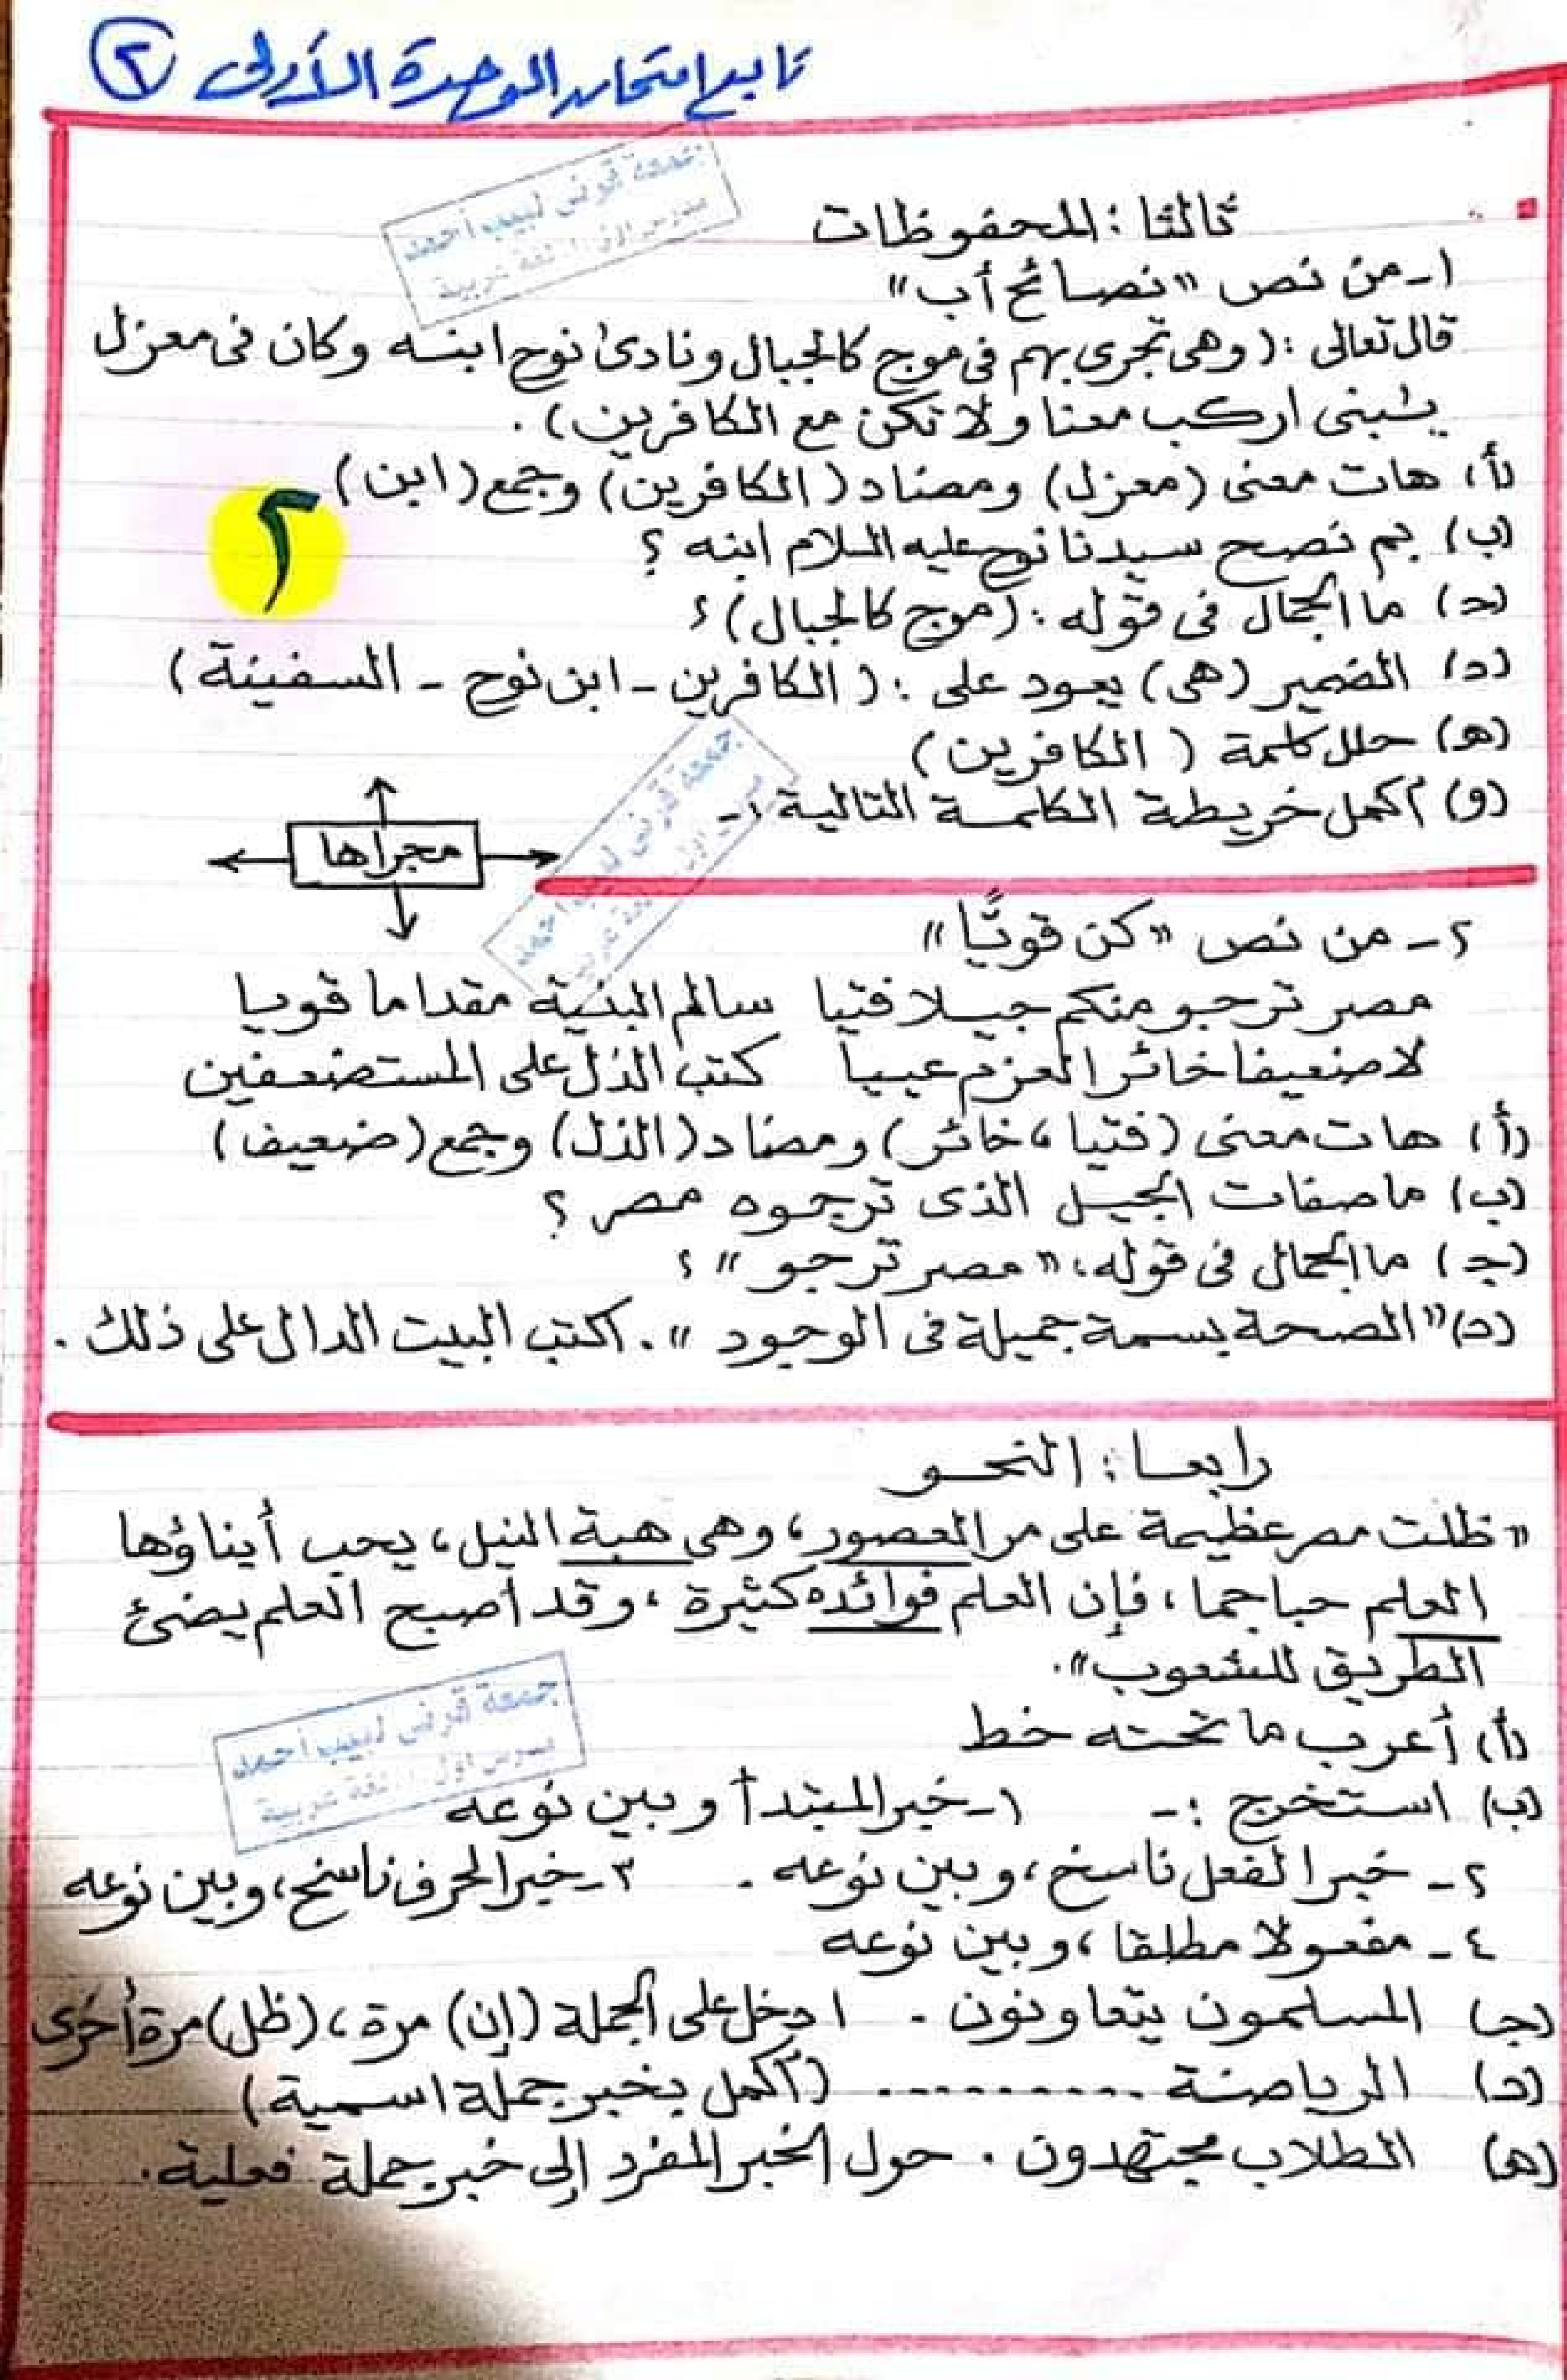 تابع امتحان الوحدة الأولى ٢
ثالثا : المحفوظات
١- من نص "نصائح أب"
قال تعالى : (وهى تجرى بهم فى موج كالجبال ونادى نوح ابنه وكان فى معزل
يبنى اركب معنا ولا تكن مع الكافرين) .
(أ) هات معنى (معزل) ومضاد (الكافرين) وجمع (ابن)
(ب) بم نصح سيدنا نوح عليه السلام ابنه ؟
٢
(حـ) ما الجمال فى قوله : (موج كالجبال) ؟
(د) الضمير (هى) يعود على : (الكافرين - ابن نوح - السفينة)
(هـ) حلل كلمة (الكافرين)
(و) أكمل خريطة الكلمة التالية :-
مجراها
٢- من نص "كن قويًّا"
مصر ترجو منكم جيلا فتيا سالم البنية مقداما قويا
لا ضعيفا خائر العزم عييا كتب الذل على المستضعفين
(أ) هات معنى (فتيا ، خائر) ومضاد (الذل) وجمع (ضعيف)
(ب) ما صفات الجيل الذى ترجوه مصر ؟
(جـ) ما الجمال فى قوله : "مصر ترجو" ؟
(د) "الصحة بسمة جميلة فى الوجود" . اكتب البيت الدال على ذلك .
رابعا : النحو
"ظلت مصر عظيمة على مر العصور ، وهى هبة النيل ، يحب أبناؤها
العلم حبا جما ، فإن العلم فوائده كثيرة ، وقد أصبح العلم يضئ
الطريق للشعوب" .
(أ) أعرب ما تحته خط
(ب) استخرج :- ١- خبر المبتدأ وبين نوعه
٢- خبرا لفعل ناسخ ، وبين نوعه . ٣- خبرا لحرف ناسخ ، وبين نوعه
٤- مفعولا مطلقا ، وبين نوعه
(جـ) المسلمون يتعاونون . ادخل على الجملة (إن) مرة ، (ظل) مرة أخرى
(د) الرياضة .......... (أكمل بخبر جملة اسمية)
(هـ) الطلاب مجتهدون . حول الخبر المفرد إلى خبر جملة فعلية .
جمعة قرنى لبيب أحمد
مدرس أول لغة عربية